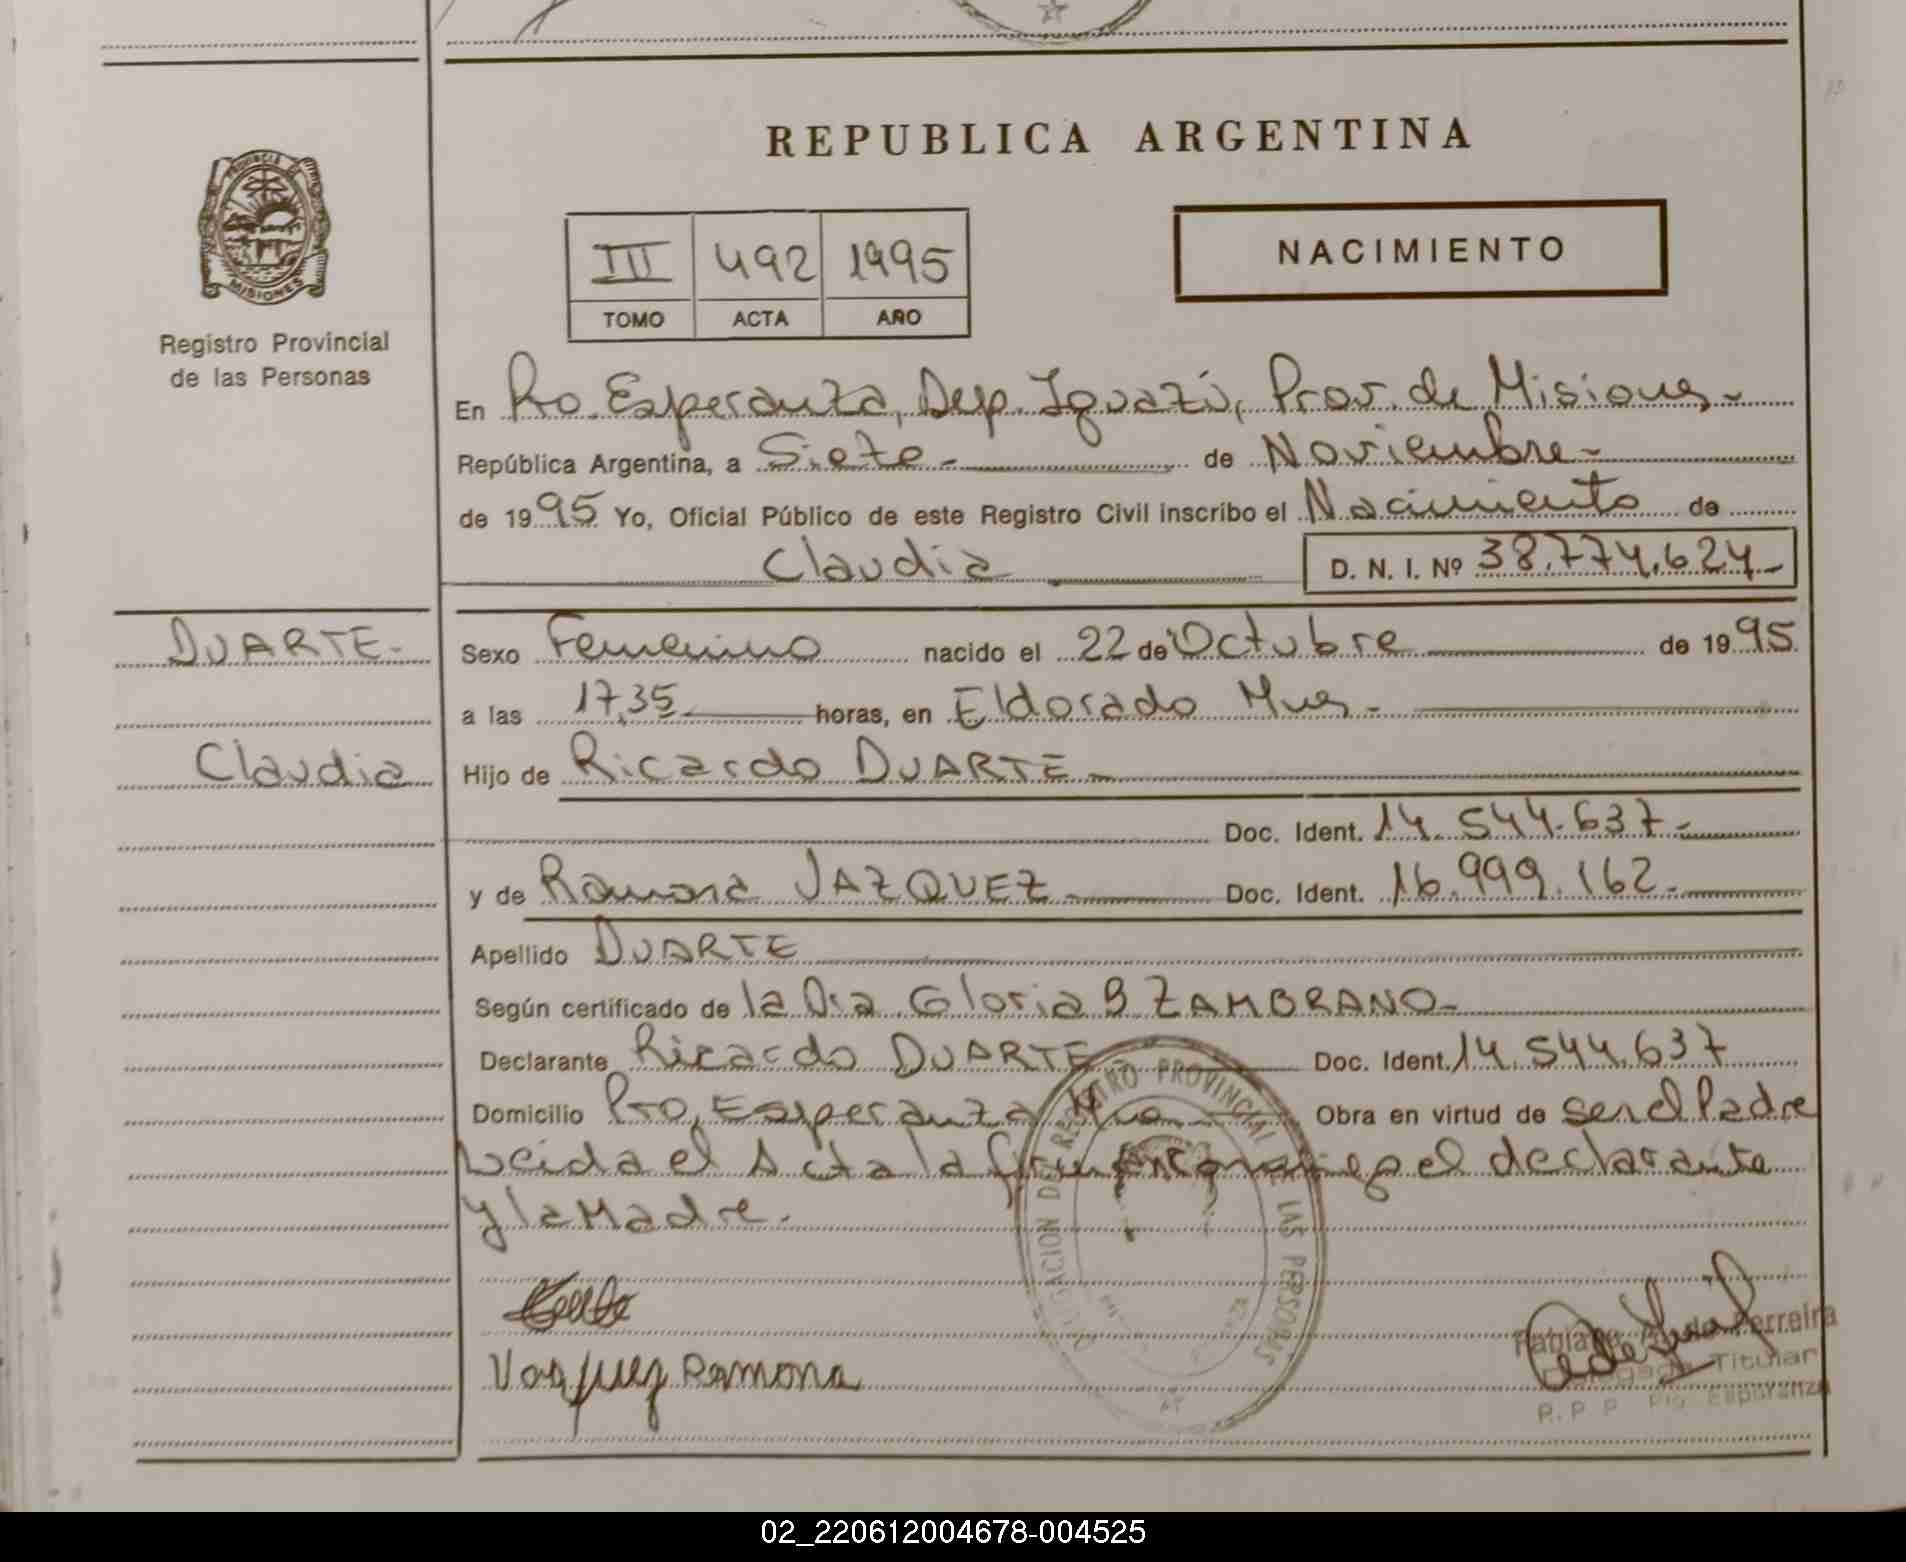 REPUBLICA ARGENTINA
PROVINCIA DE
MISIONES
Registro Provincial
de las Personas
III 492 1995
TOMO ACTA AÑO
NACIMIENTO
En Pto. Esperanza, Dep. Iguazú, Prov. de Misiones -
República Argentina, a Siete - de Noviembre -
de 1995 Yo, Oficial Público de este Registro Civil inscribo el Nacimiento de
Claudia D. N. I. Nº 38.774.624 -
DUARTE - Sexo Femenino nacido el 22 de Octubre de 1995
a las 17,35 horas, en Eldorado Mnes -
Claudia Hijo de Ricardo DUARTE -
Doc. Ident. 14.544.637 -
y de Ramona VAZQUEZ - Doc. Ident. 16.999.162 -
Apellido DUARTE
Según certificado de la Dra Gloria B ZAMBRANO -
Declarante Ricardo DUARTE Doc. Ident. 14.544.637
Domicilio Pto. Esperanza Obra en virtud de ser el Padre
Leida el Acta la el declarante
y la Madre.
DELEGACION DEL REGISTRO PROVINCIAL DE LAS PERSONAS
Vasquez Ramona
Ferreira
Delegado Titular
R. P. P. Pto. Esperanza
02_220612004678-004525